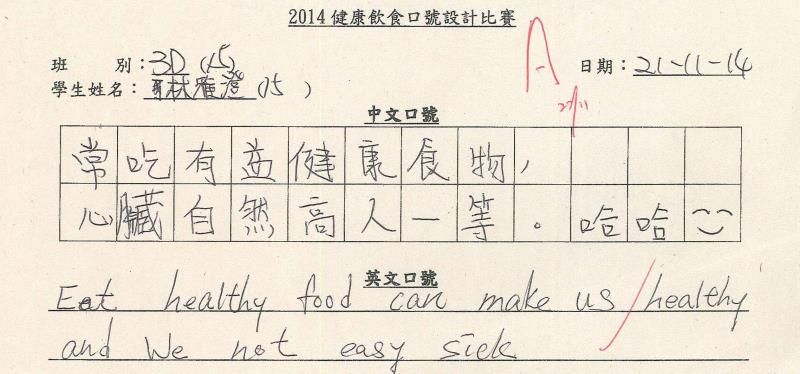 2014 健康飲食口號設計比賽
班 別：3D (15)
日期：21-11-14
A
27/11
學生姓名：林雅澄 (15)
中文口號
常吃有益健康食物，
心臟自然高人一等。哈哈
英文口號
Eat healthy food can make us healthy
and We not easy sick